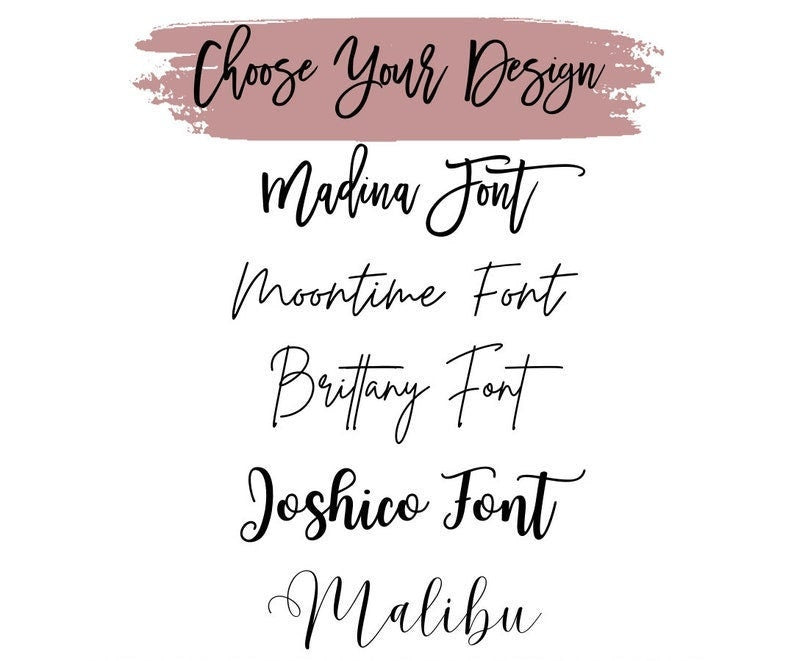 Choose Your Design
Madina Font
Moontime Font
Brittany Font
Joshico Font
Malibu